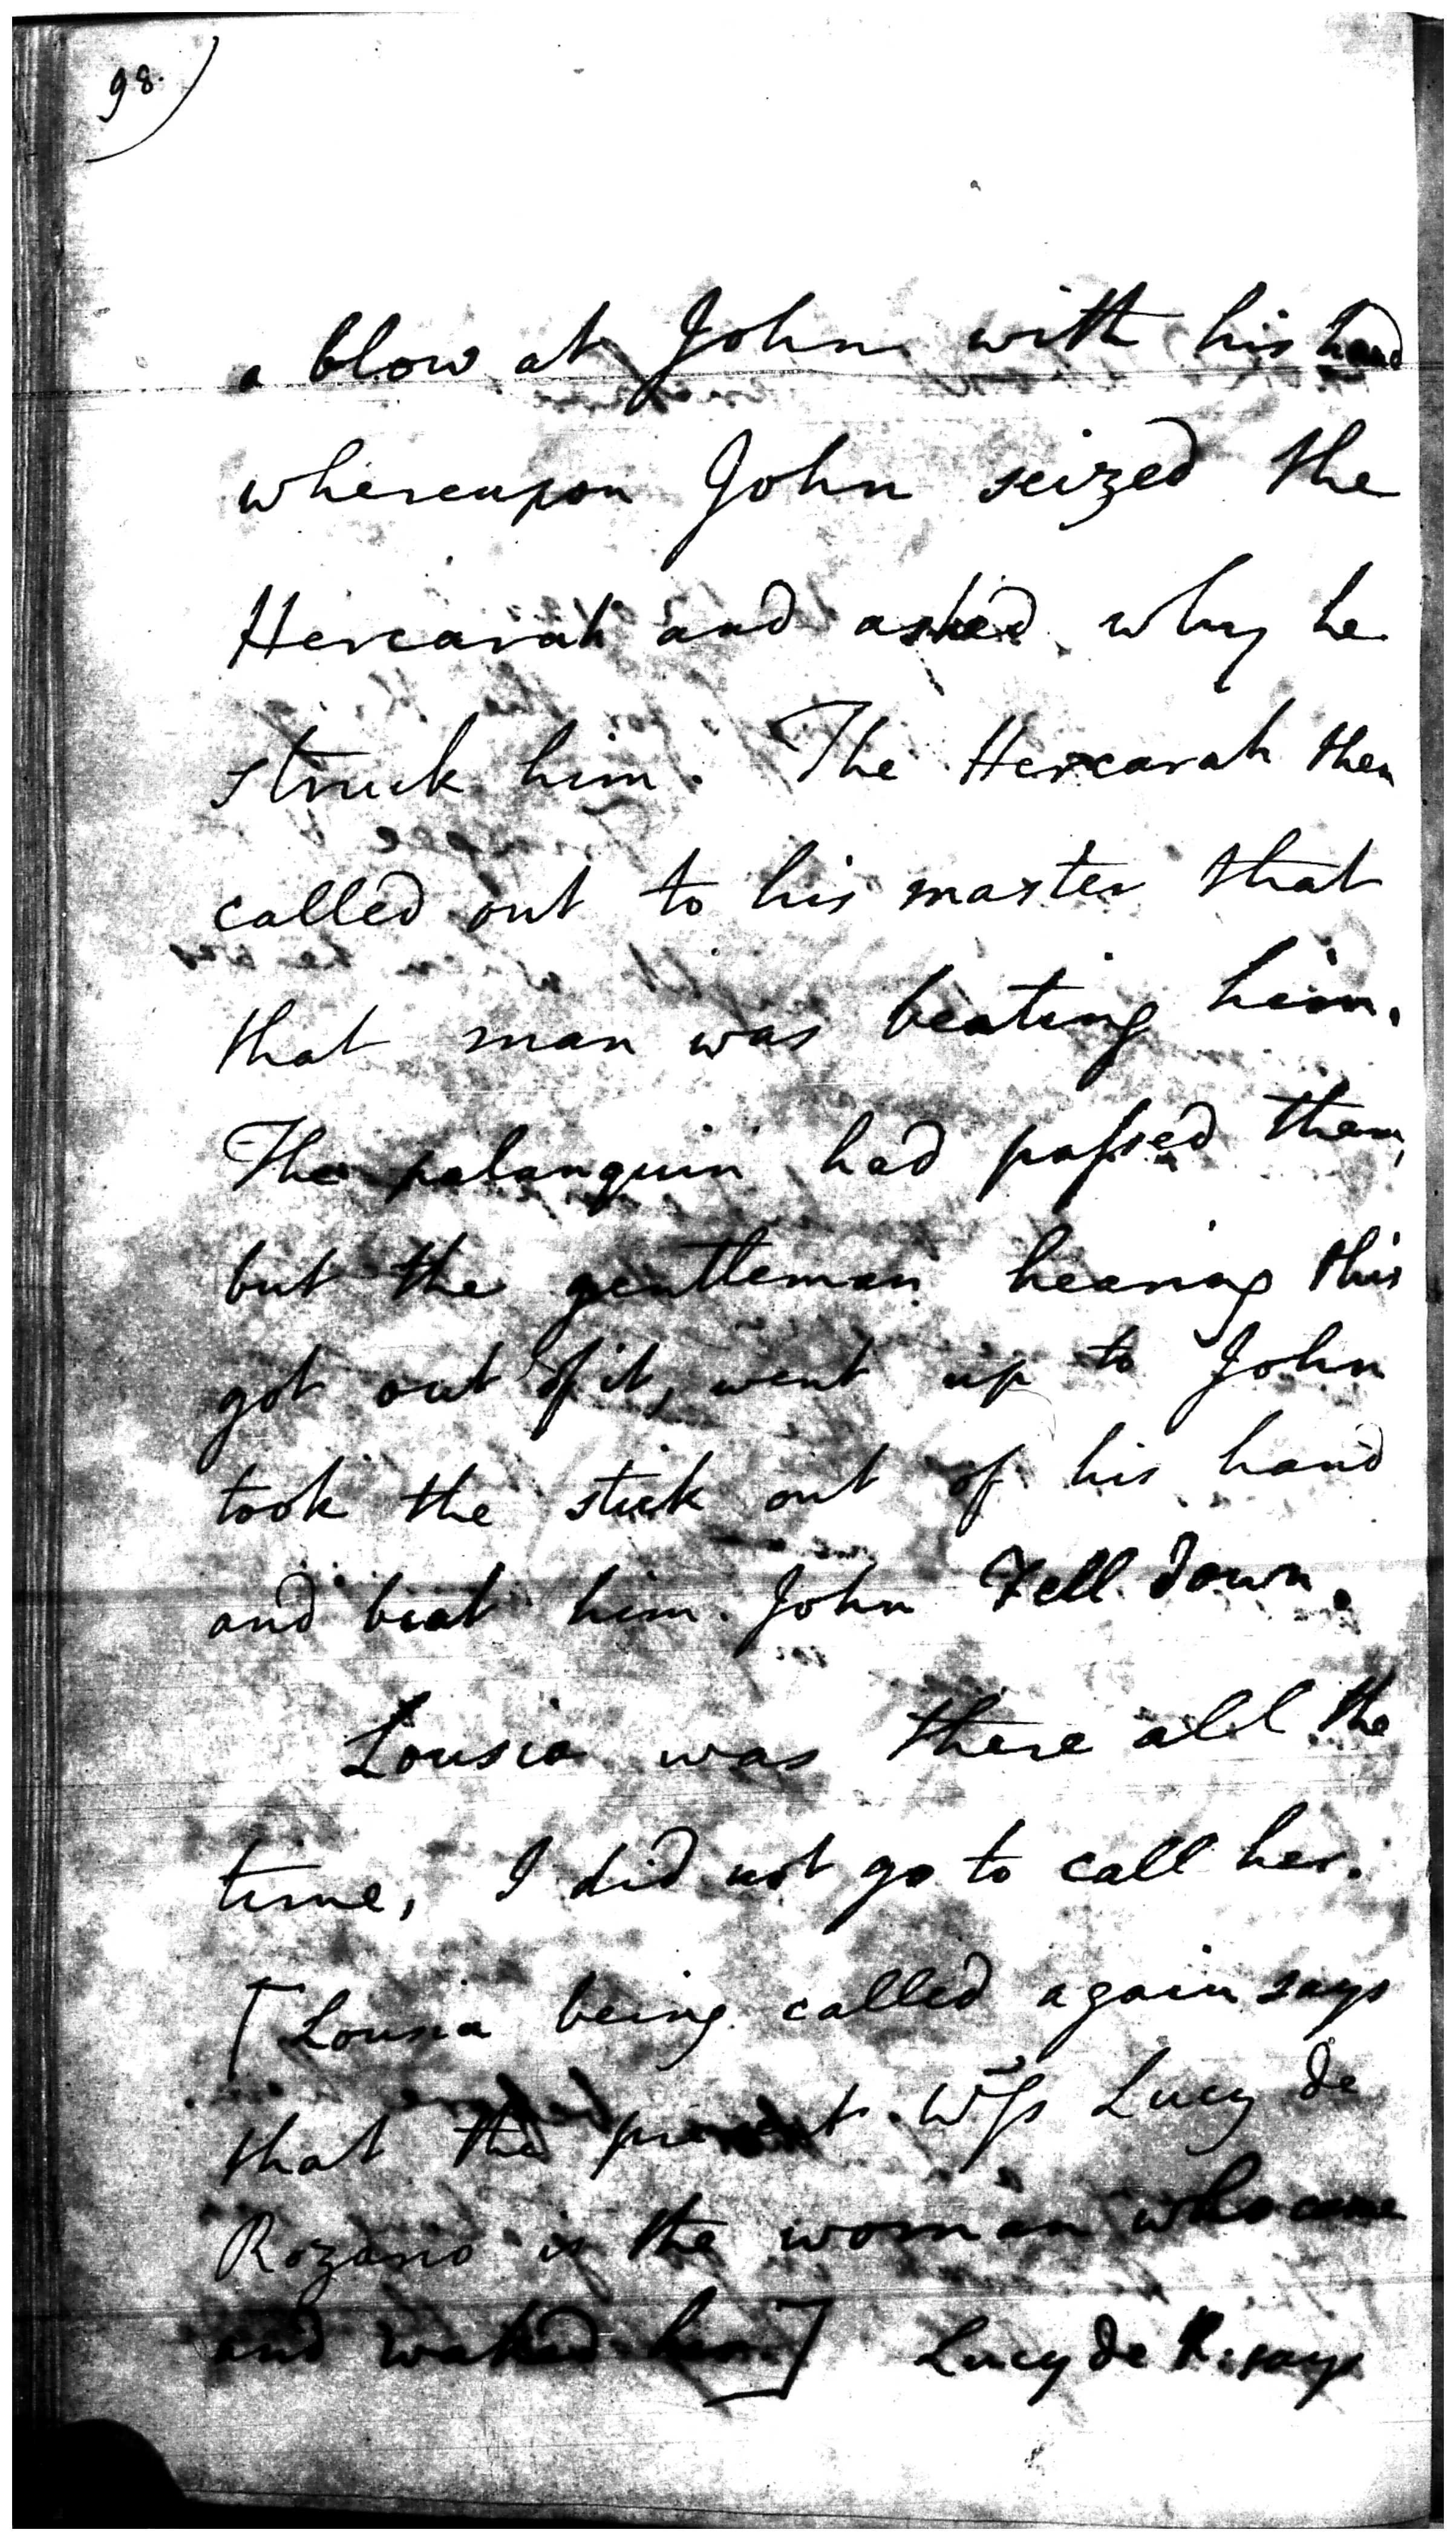 98.
a blow at John with his hand
whereupon John seized the
Hercarah and asked why he
struck him. The Hercarah then
called out to his master that
that man was beating him.
The palanquin had passed them,
but the gentleman hearing this
got out of it, went up to John
took the stick out of his hand
and beat him. John Fell down.
Lousia was there all the
time, I did not go to call her.
[Lousia being called again says
that the present Wss Lucy de
Rozario is the woman who came
and waked her] Lucy de R. says